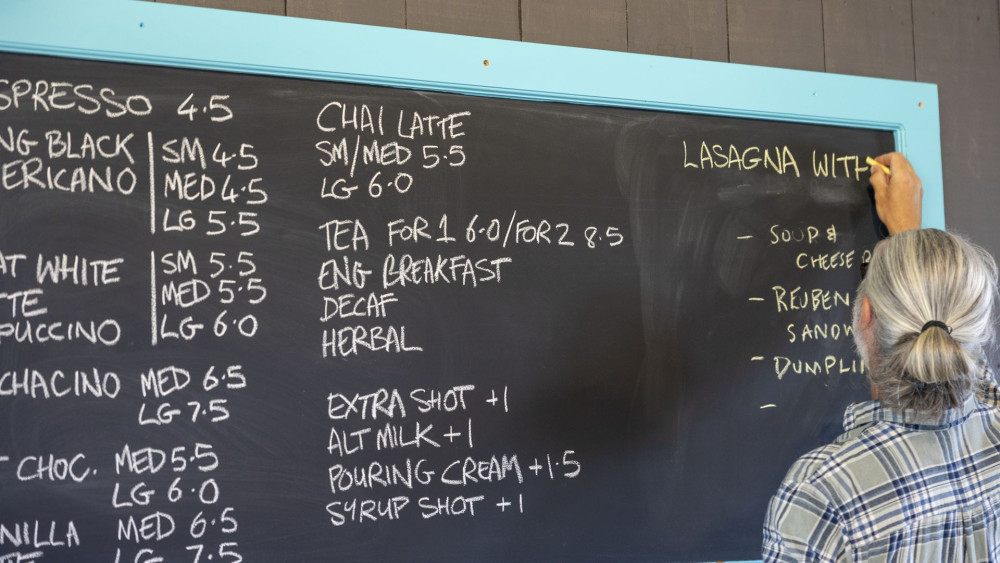 SPRESSO 4.5
NG BLACK SM 4.5
ERICANO MED 4.5
LG 5.5
AT WHITE SM 5.5
TTE MED 5.5
PUCCINO LG 6.0
CHACINO MED 6.5
LG 7.5
T CHOC. MED 5.5
LG 6.0
NILLA MED 6.5
TTE LG 7.5
CHAI LATTE
SM/MED 5.5
LG 6.0
TEA FOR 1 6.0/FOR 2 8.5
ENG BREAKFAST
DECAF
HERBAL
EXTRA SHOT +1
ALT MILK +1
POURING CREAM +1.5
SYRUP SHOT +1
LASAGNA WITH
- SOUP &
CHEESE
- REUBEN
SANDW
- DUMPLI
-